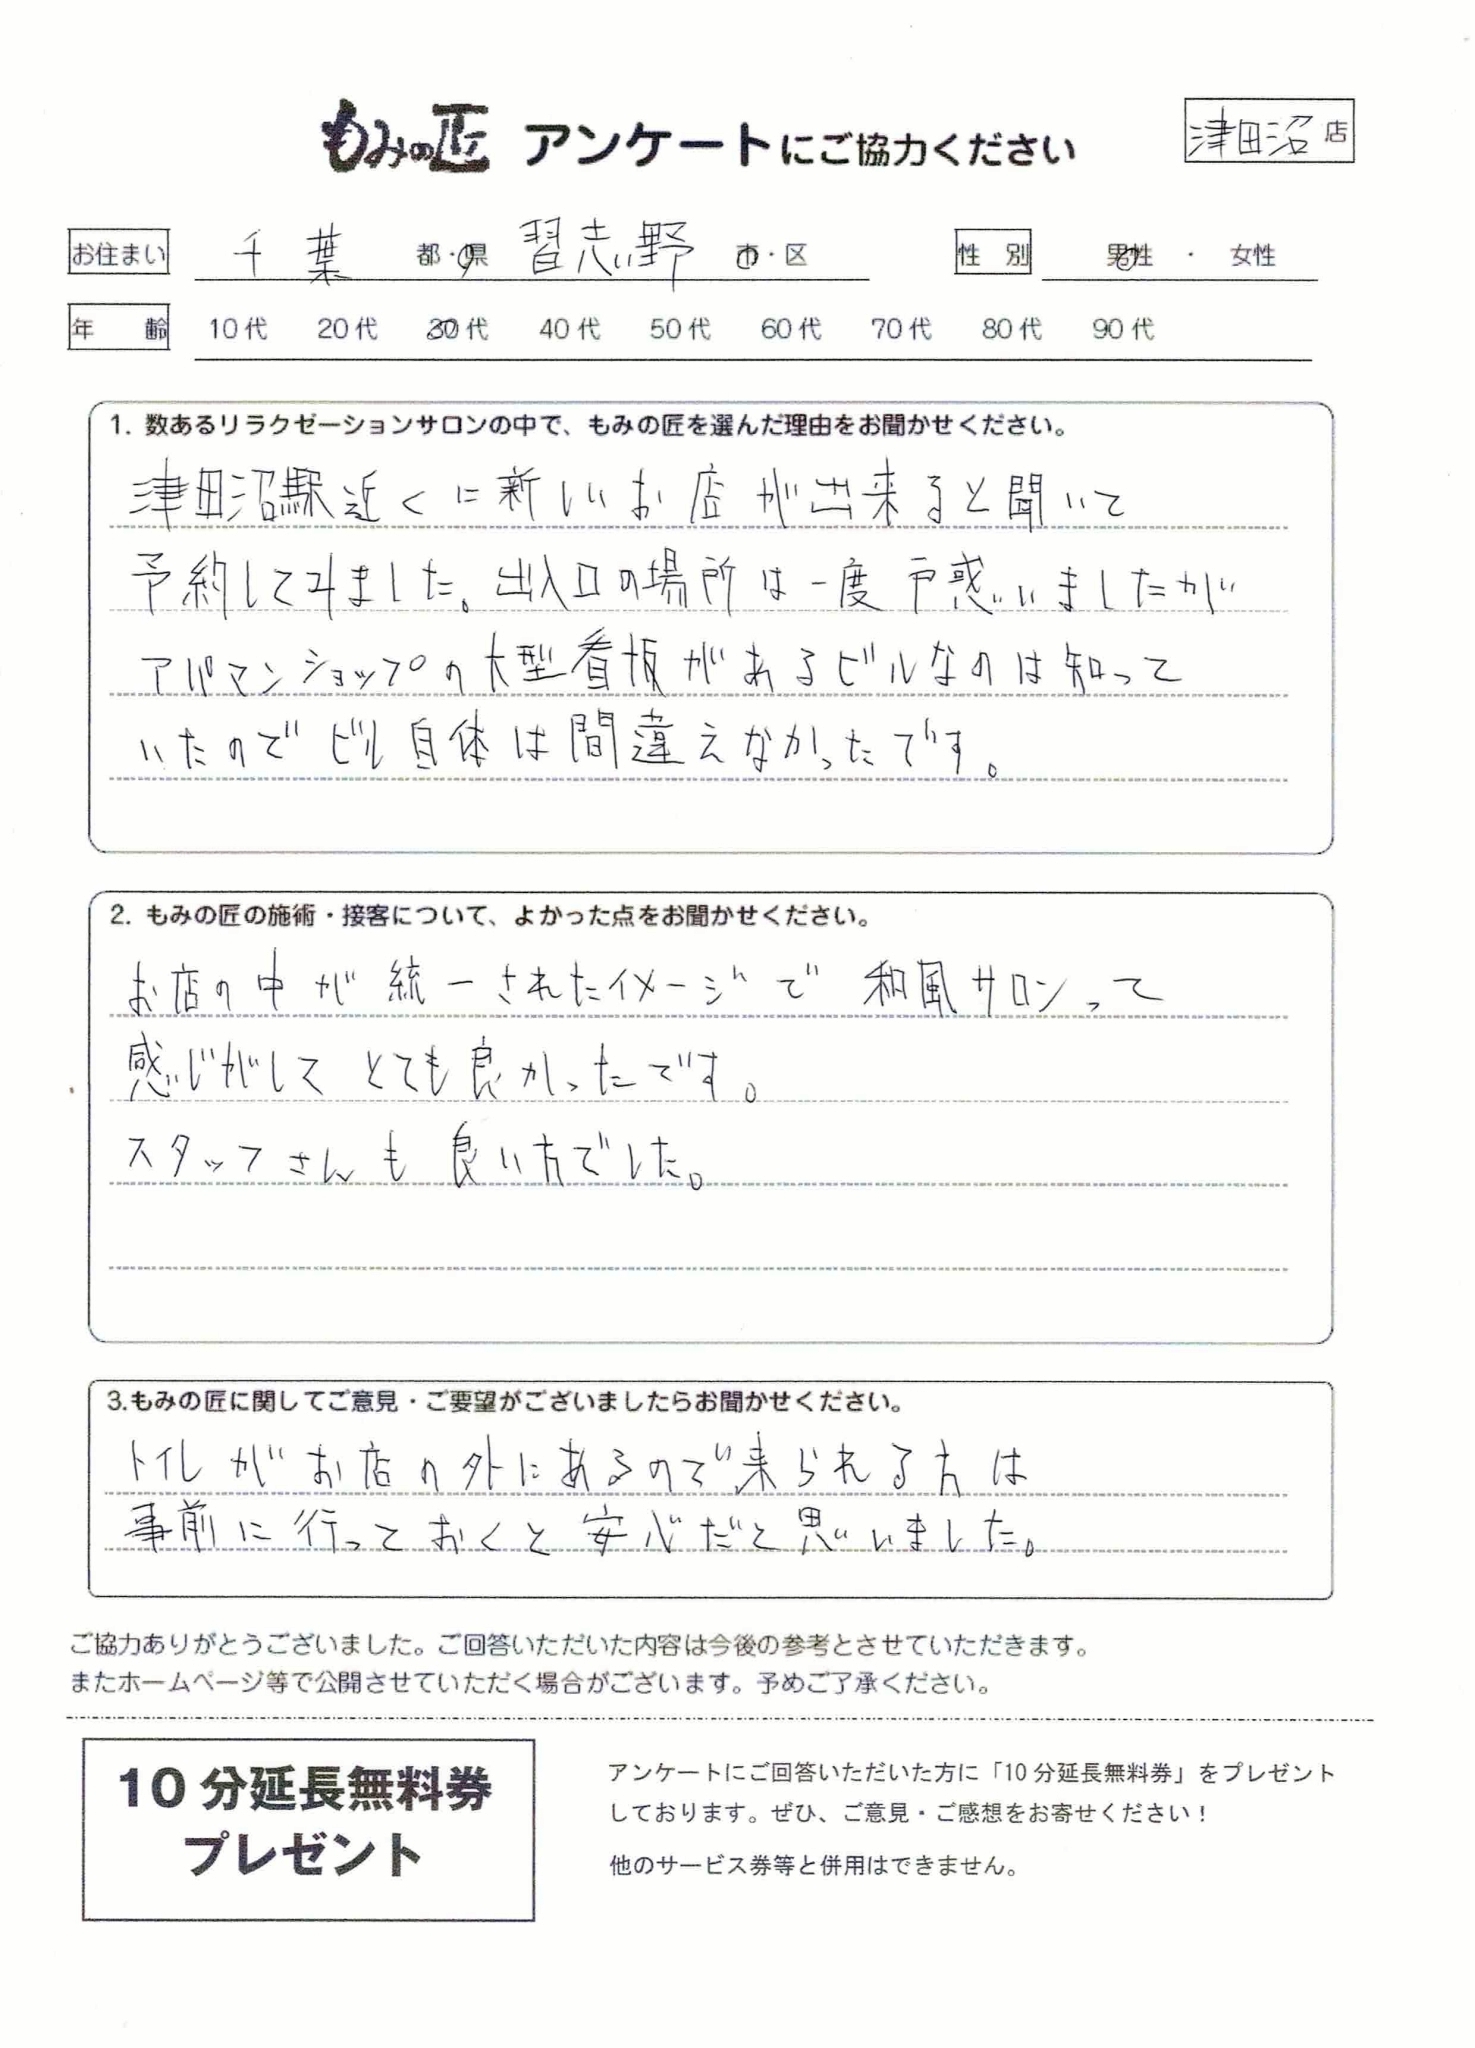 もみの匠 アンケートにご協力ください
津田沼 店
お住まい 千葉 都・県 習志野 市・区 性別 男性 ・ 女性
年齢 10代 20代 30代 40代 50代 60代 70代 80代 90代
1. 数あるリラクゼーションサロンの中で、もみの匠を選んだ理由をお聞かせください。
津田沼駅近くに新しいお店が出来ると聞いて
予約してみました。出入口の場所は一度戸惑いましたが
アパマンショップの大型看板があるビルなのは知って
いたのでビル自体は間違えなかったです。
2. もみの匠の施術・接客について、よかった点をお聞かせください。
お店の中が統一されたイメージで和風サロンって
感じがしてとても良かったです。
スタッフさんも良い方でした。
3.もみの匠に関してご意見・ご要望がございましたらお聞かせください。
トイレがお店の外にあるので来られる方は
事前に行っておくと安心だと思いました。
ご協力ありがとうございました。ご回答いただいた内容は今後の参考とさせていただきます。
またホームページ等で公開させていただく場合がございます。予めご了承ください。
10分延長無料券
プレゼント
アンケートにご回答いただいた方に「10分延長無料券」をプレゼント
しております。ぜひ、ご意見・ご感想をお寄せください!
他のサービス券等と併用はできません。